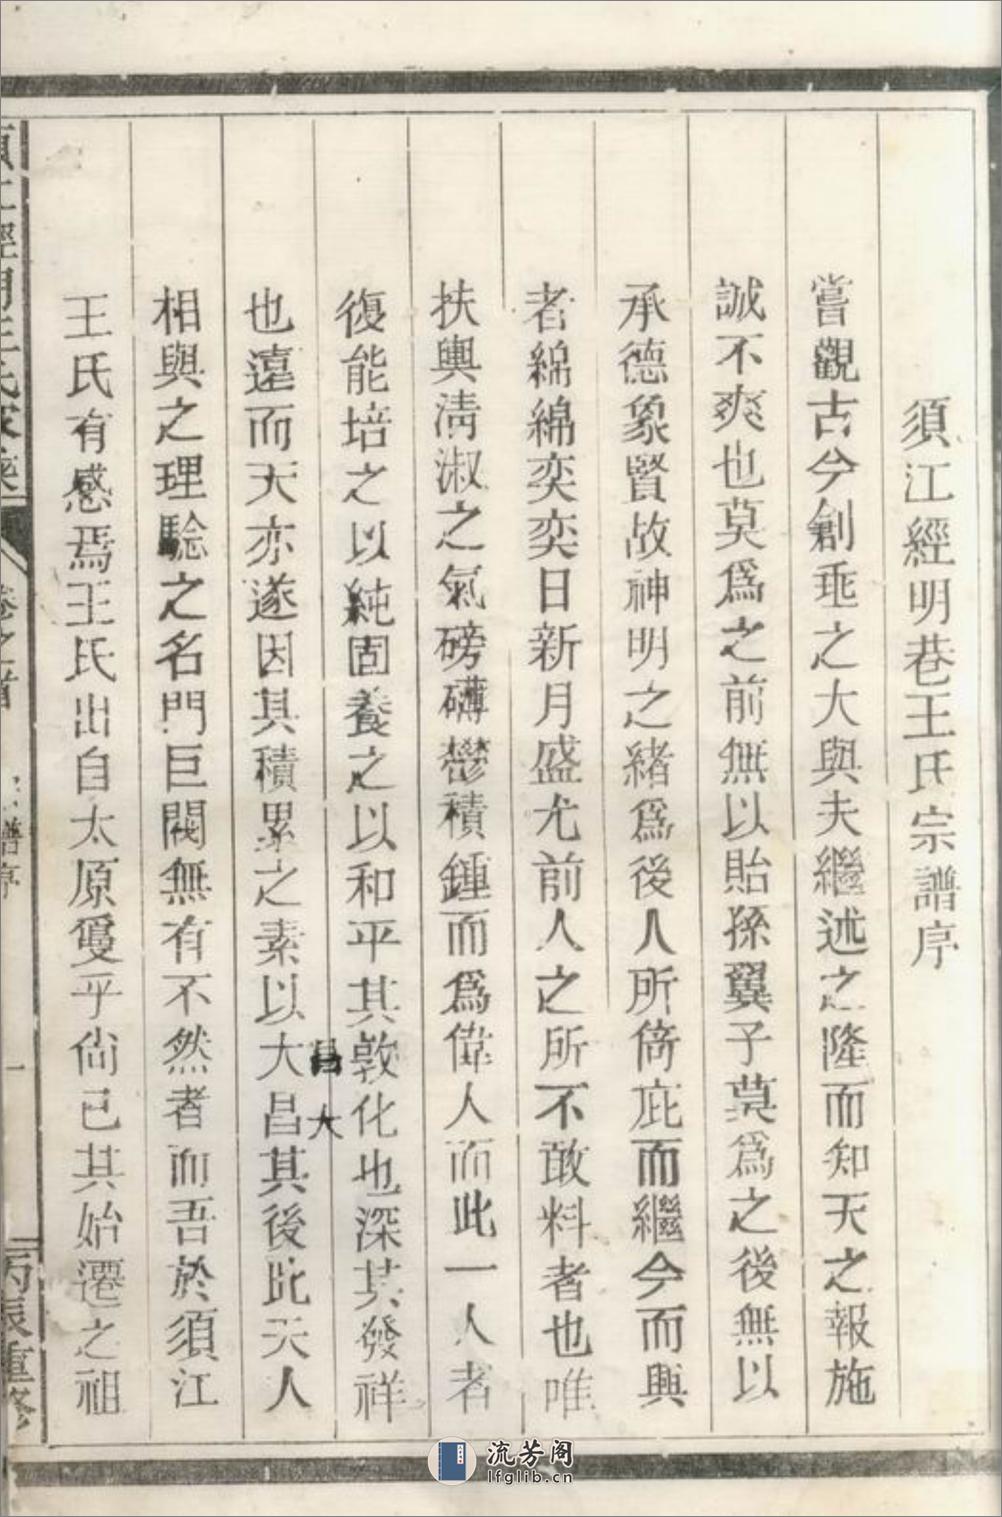 須江經明巷王氏宗譜序
嘗觀古今創垂之大與夫繼述之隆而知天之報施
誠不爽也莫爲之前無以貽孫翼子莫爲之後無以
承德象賢故神明之緒爲後人所倚庇而繼今而興
者綿綿奕奕日新月盛尤前人之所不敢料者也唯
扶輿淸淑之氣磅礴鬱積鍾而爲偉人而此一人者
復能培之以純固養之以和平其敦化也深其發祥
昌大
也遠而天亦遂因其積累之素以大昌其後此天人
相與之理騐之名門巨閥無有不然者而吾於須江
王氏有感焉王氏出自太原夐乎尙已其始遷之祖
須江經明王氏家乘 卷之首 譜序 一 丙辰重修
流芳阁
lfglib.cn